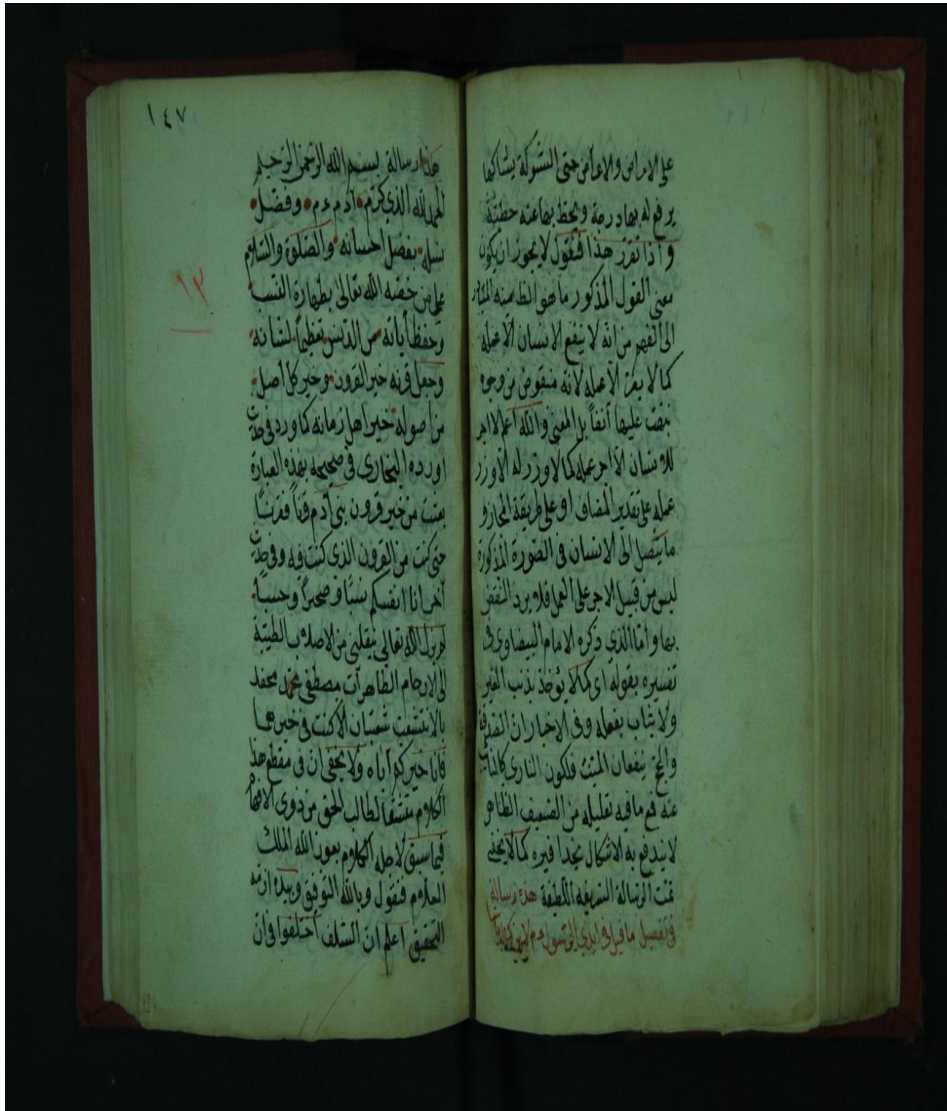 على الامراض والاعراض حتى الشوكة يشاكها
يرفع له بها درجة ويحط بها عنه خطيئة
واذا تقرر هذا فنقول لا يجوز ان يكون
معنى القول المذكور ما هو الظ منه
الى الفهم من انه لا ينفع الانسان الا عمله
كما لا يضر الا عمله لانه منقوض بوجوه
نبهت عليها آنفا بل المعنى والله اعلم لا اجر
للانسان الا اجر عمله كما لا وزر له الا وزر
عمله على تقدير المضاف او على طريقة المجاز و
ما يتصل الى الانسان فى الصورة المذكورة
ليس من قبيل الاجر على العمل فلا يرد النقض
بها واما الذى ذكره الامام البيضاوى فى
تفسيره بقوله اى كما لا يؤخذ بذنب الغير
ولا يثاب بفعله وفى الاخبار ان الصدقة
والحج ينفعان الميت فلكون الناوى كالنائب
عنه فمع ما فيه تقليله من الضعف الظاهر
لا يندفع به الاشكال بحذافيره كما لا يخفى
تمت الرسالة الشريفة اللطيفة هذه رسالة
فى تفصيل ما قيل فى ابوى الرسول
١٤٧
هذا رسالة بسم الله الرحمن الرحيم
الحمد لله الذى كرم آدم عم وفضل
نسله بفضل احسانه والصلوة والسلام
على من خصه الله تعالى بطهارة النسب
وحفظ آبائه من الدنس تعظيما لشانه
وجعل قرنه خير القرون وخير كل اصل
من اصوله خير اهل زمانه كما ورد فى حديث
اورده البخارى فى صحيحه بهذه العبارة
بعثت من خير قرون بنى آدم قرنا فقرنا
حتى كنت من القرون الذى كنت فيه وفى حديث
آخر انا انفسكم نسبا وصهرا وحسبا
لم يزل الله تعالى ينقلنى من الاصلاب الطيبة
الى الارحام الطاهرات مصطفى محمد
لا تتشعب شعبتان الا كنت فى خيرهما
فانا خيركم آباه ولا يخفى ان فى مقطع هذا
الكلام مقنعا لطالب الحق من ذوى الافهام
فيما سيق لاجله الكلام بعون الله الملك
العلام فنقول وبالله التوفيق وبيده ازمة
التحقيق اعلم ان السلف اختلفوا فى ان
١٣